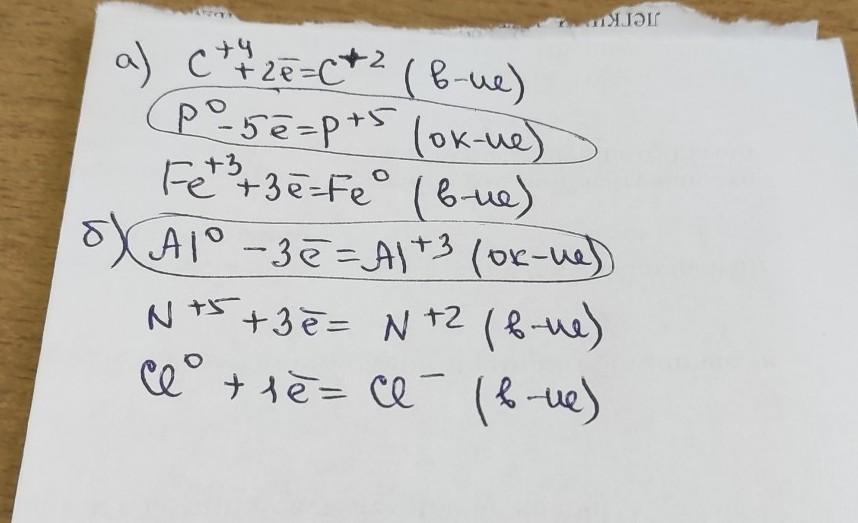 а) C⁺⁴ + 2ē = C⁺² (в-ие)
P⁰ - 5ē = P⁺⁵ (ок-ие)
Fe⁺³ + 3ē = Fe⁰ (в-ие)
б) Al⁰ - 3ē = Al⁺³ (ок-ие)
N⁺⁵ + 3ē = N⁺² (в-ие)
Cl⁰ + 1ē = Cl⁻ (в-ие)